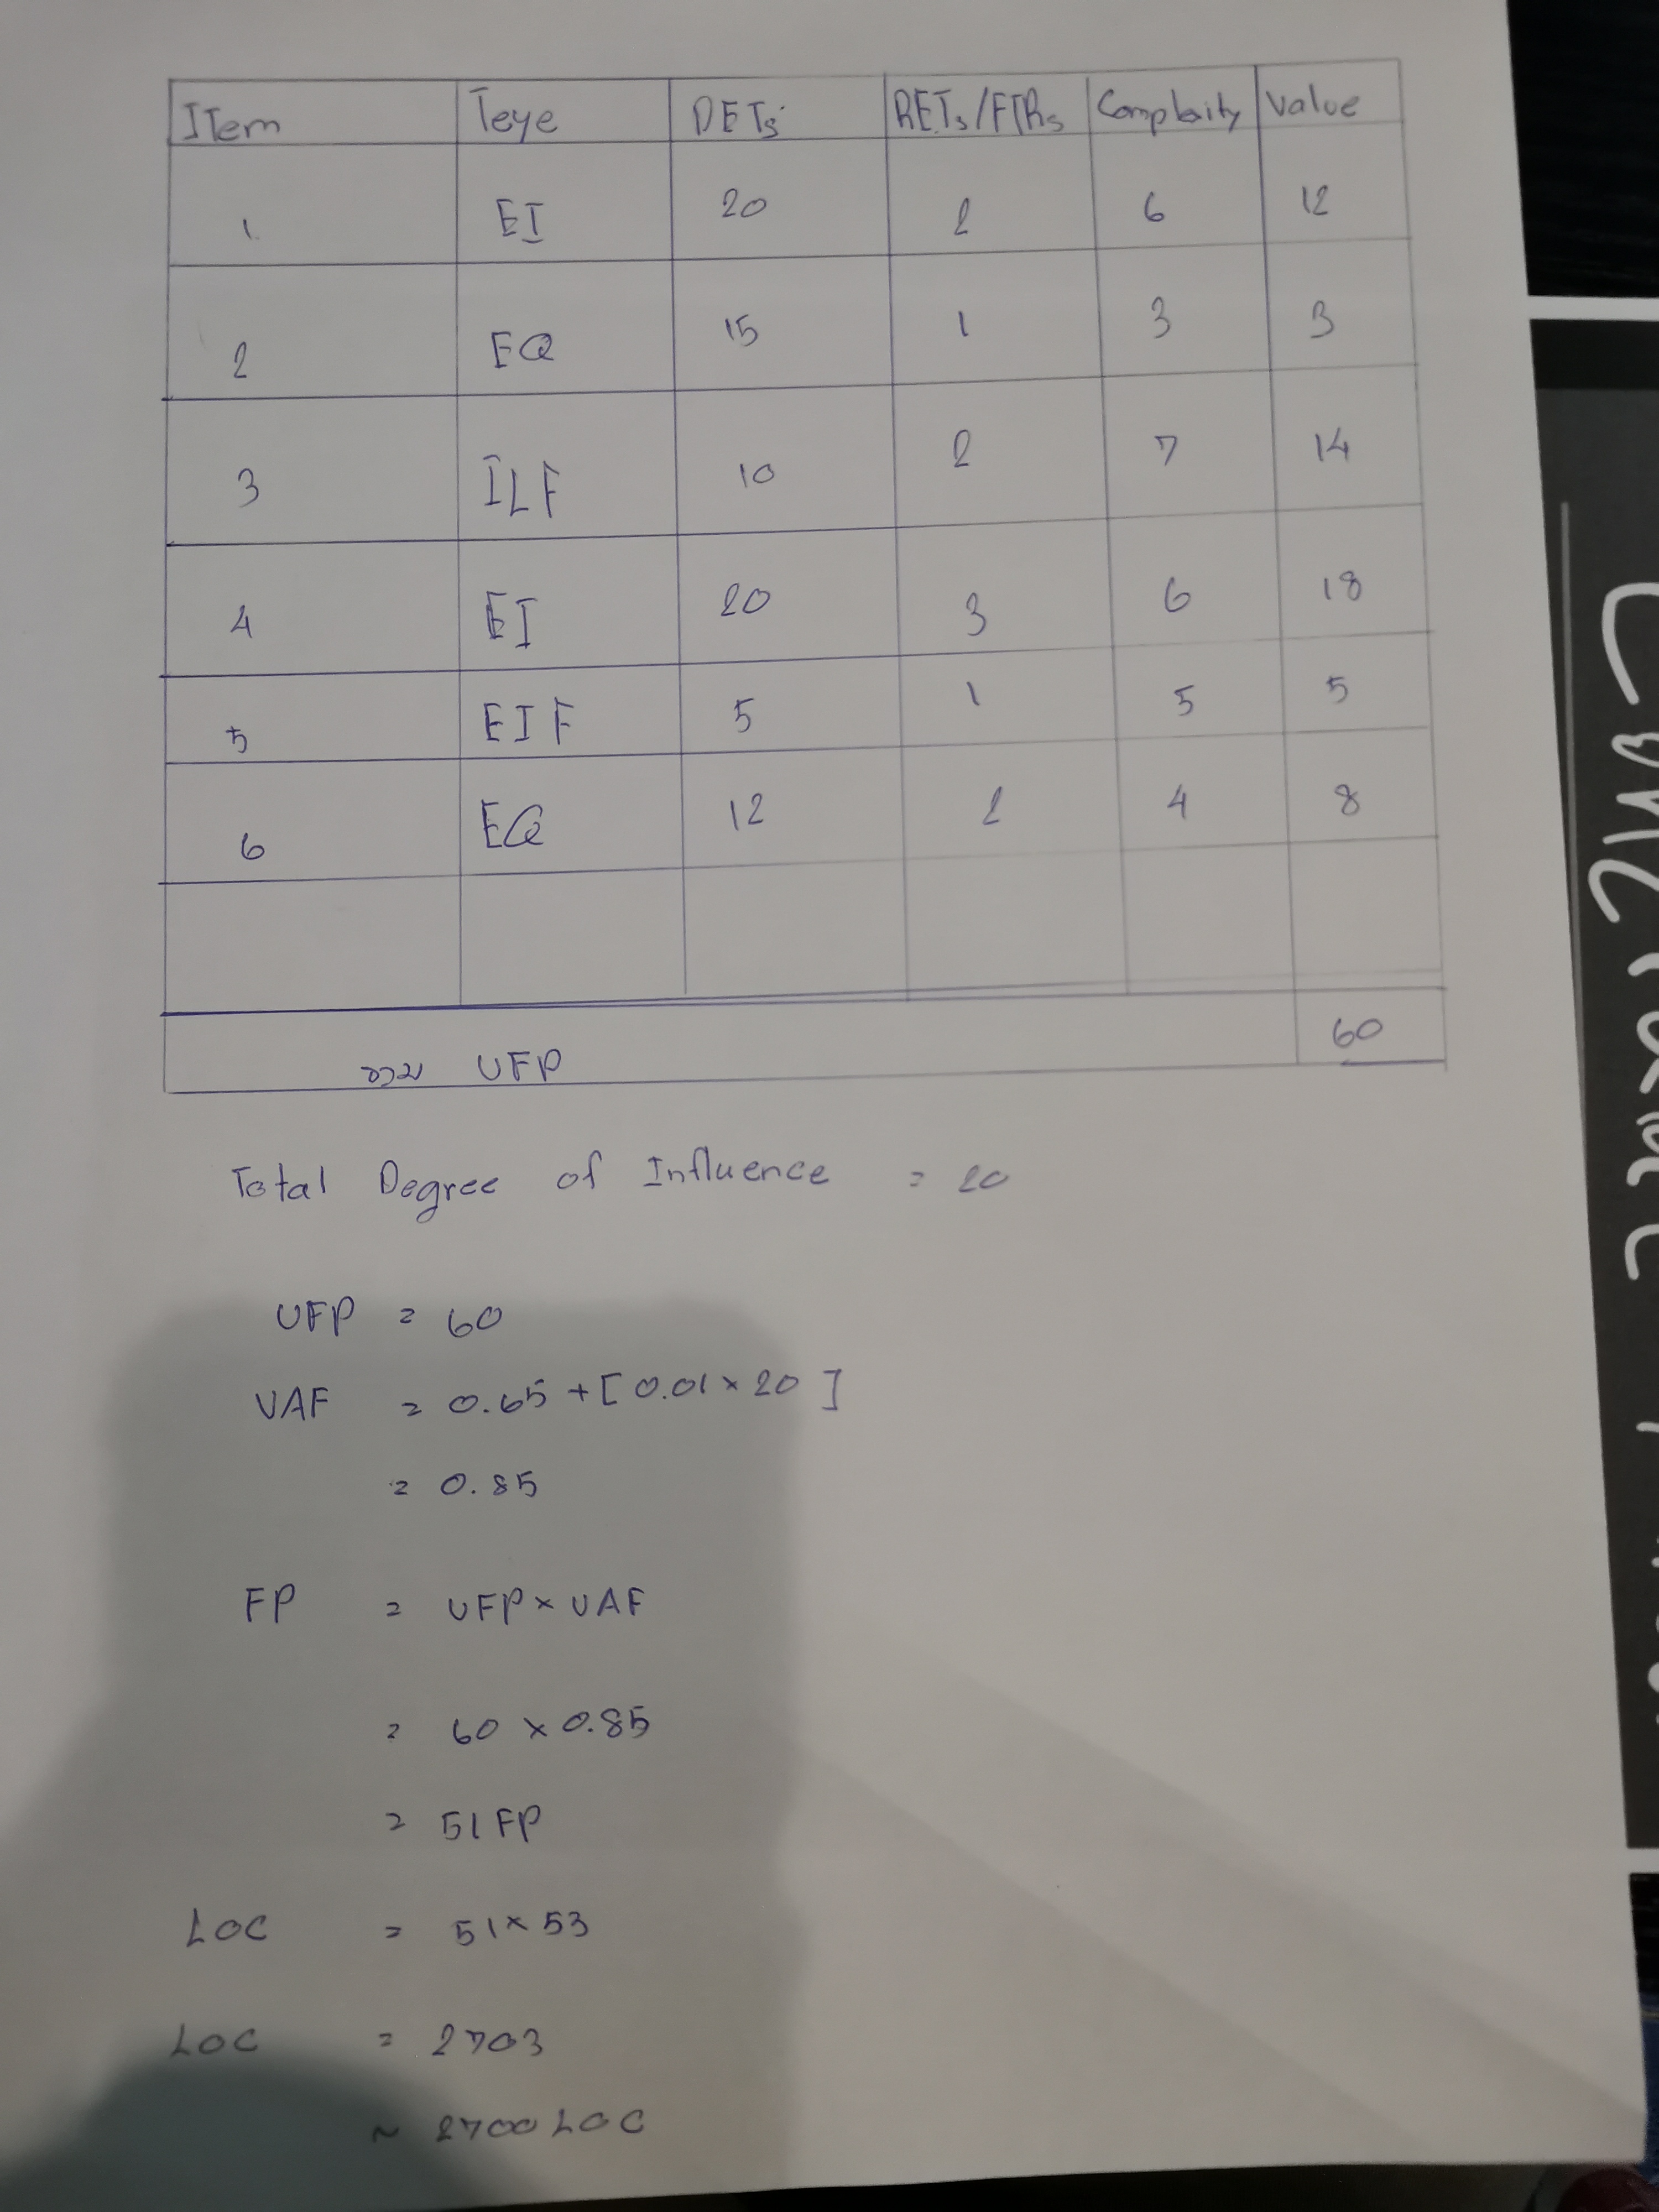 Item Teye DETs RETs/FTRs Complaity Value
1 EI 20 2 6 12
2 EQ 15 1 3 3
3 ILF 10 2 7 14
4 EI 20 3 6 18
5 EIF 5 1 5 5
6 EQ 12 2 4 8
รวม UFP 60
Total Degree of Influence = 20
UFP = 60
VAF = 0.65 + [0.01 × 20]
= 0.85
FP = UFP × VAF
= 60 × 0.85
= 51 FP
LOC = 51 × 53
LOC = 2703
~ 2700 LOC